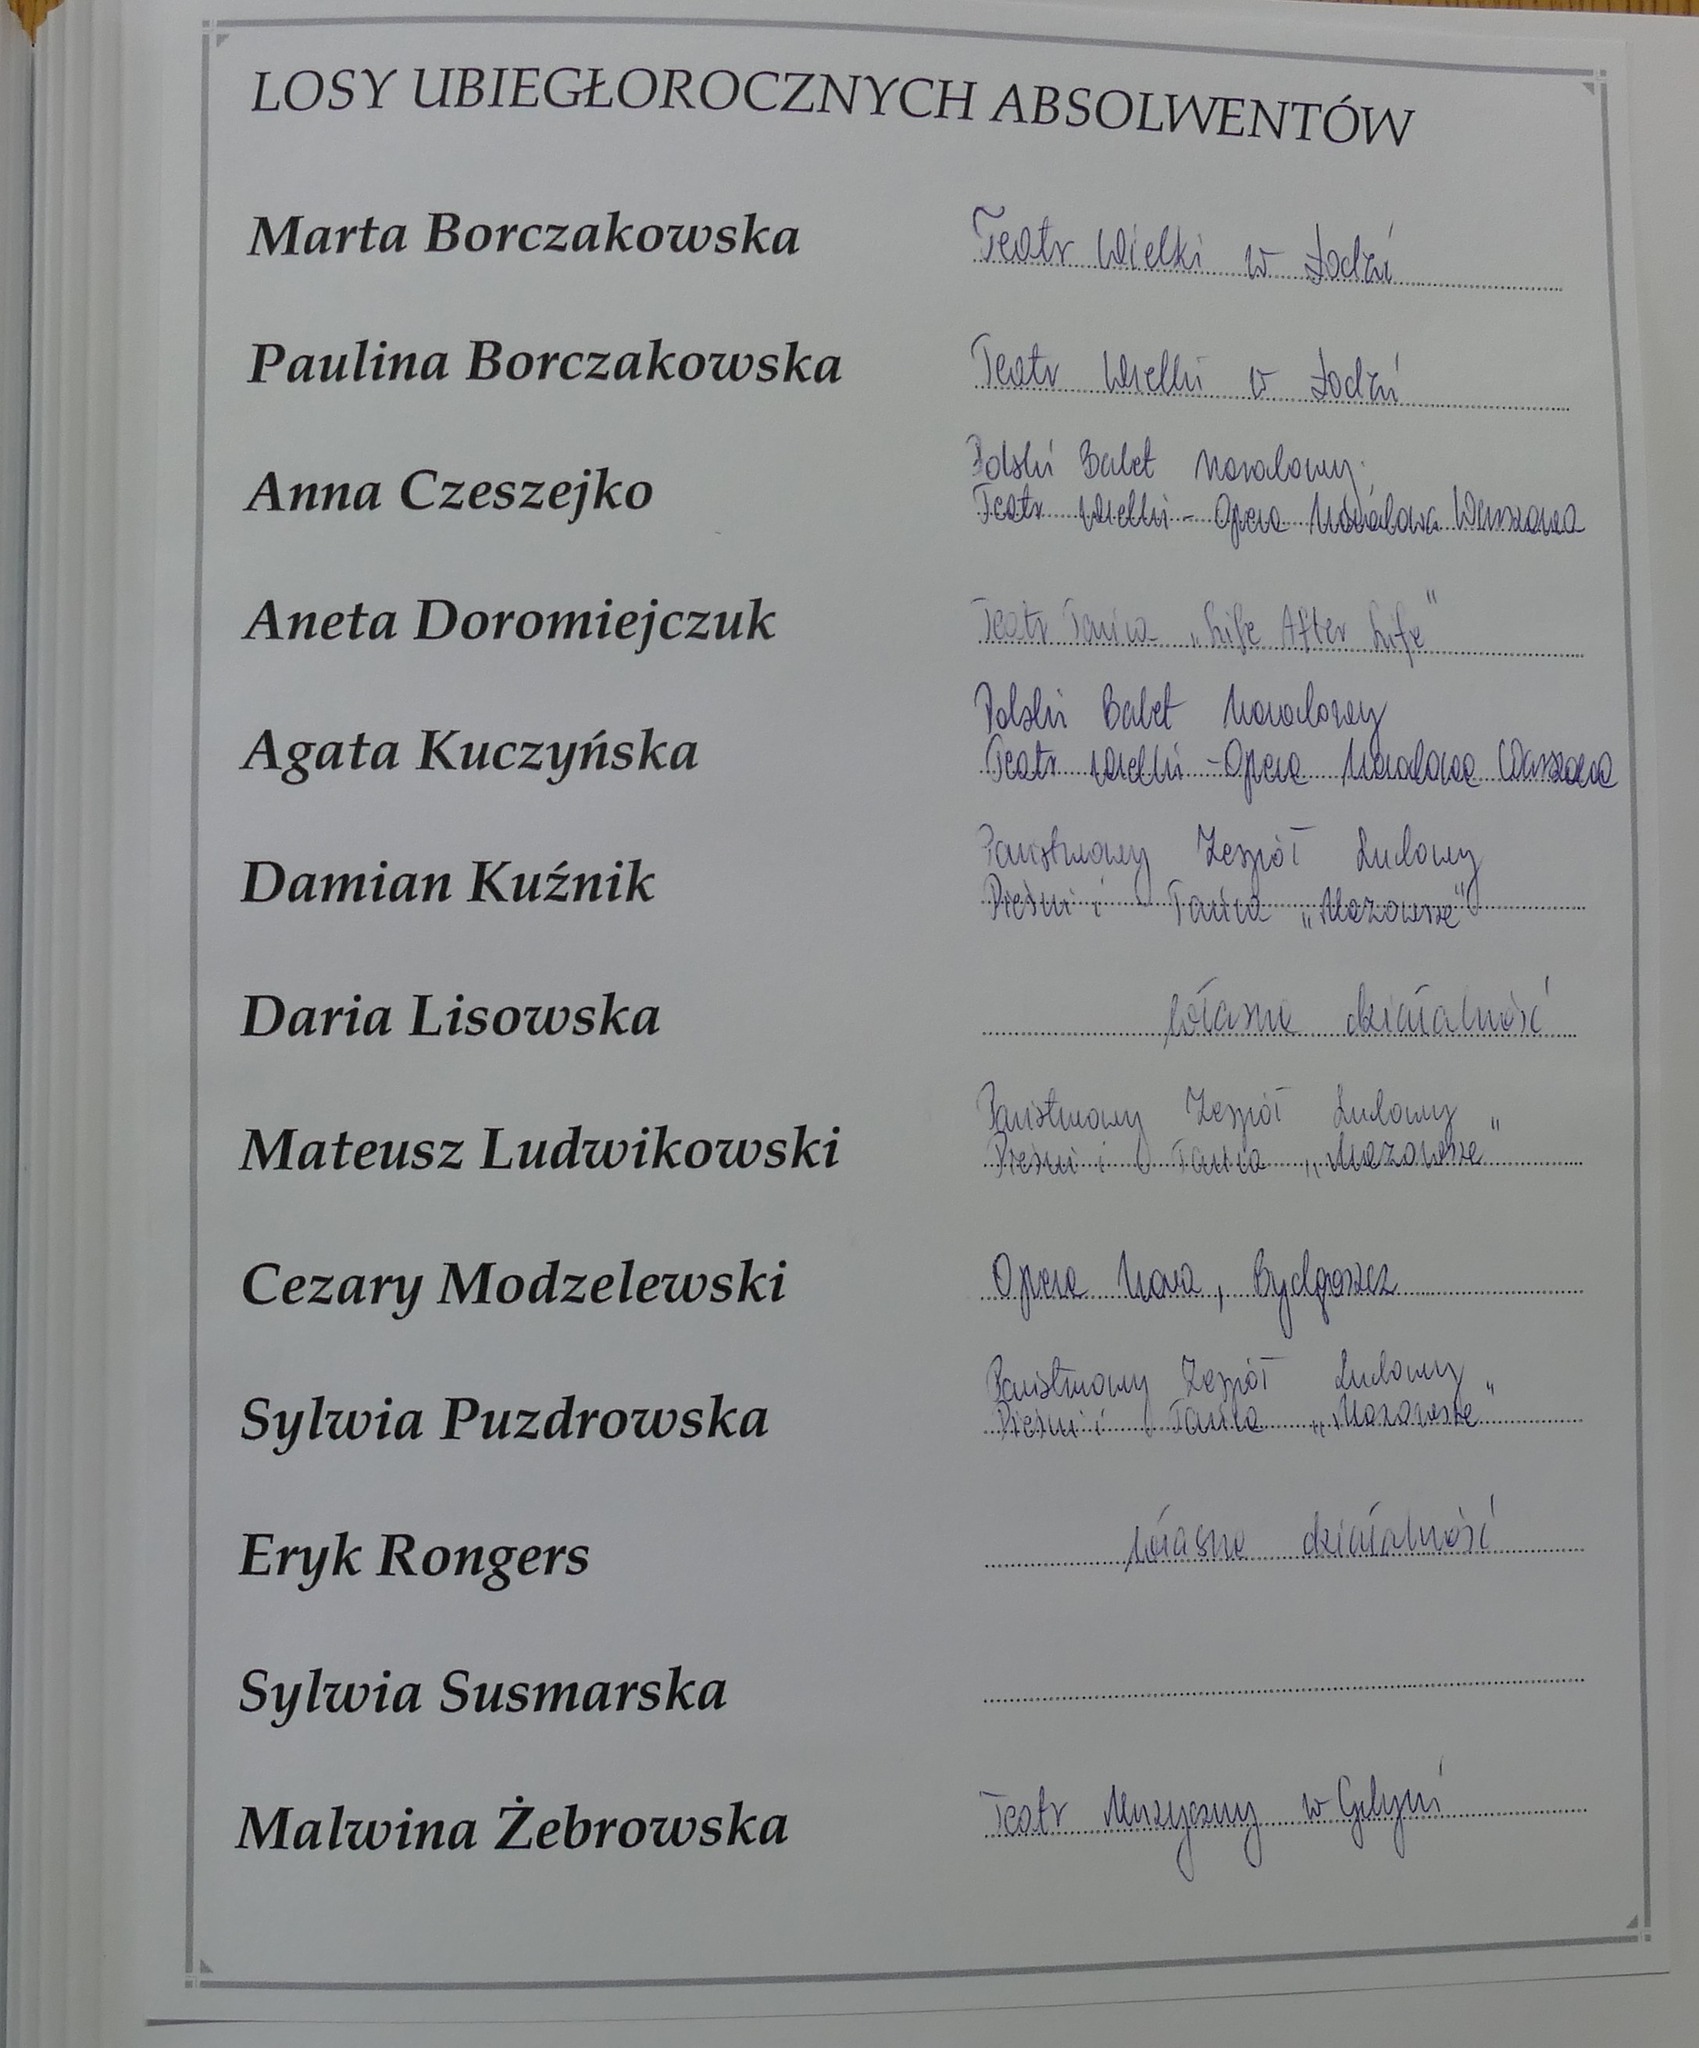 LOSY UBIEGŁOROCZNYCH ABSOLWENTÓW
Marta Borczakowska Teatr Wielki w Łodzi
Paulina Borczakowska Teatr Wielki w Łodzi
Polski Balet Narodowy;
Anna Czeszejko Teatr Wielki - Opera Narodowa Warszawa
Aneta Doromiejczuk Teatr Tańca „Life After Life"
Polski Balet Narodowy
Agata Kuczyńska Teatr Wielki - Opera Narodowa Warszawa
Państwowy Zespół Ludowy
Damian Kuźnik Pieśni i Tańca „Mazowsze"
Daria Lisowska własna działalność
Państwowy Zespół Ludowy
Mateusz Ludwikowski Pieśni i Tańca „Mazowsze"
Cezary Modzelewski Opera Nova, Bydgoszcz
Państwowy Zespół Ludowy
Sylwia Puzdrowska Pieśni i Tańca „Mazowsze"
Eryk Rongers własna działalność
Sylwia Susmarska
Malwina Żebrowska Teatr Muzyczny w Gdyni